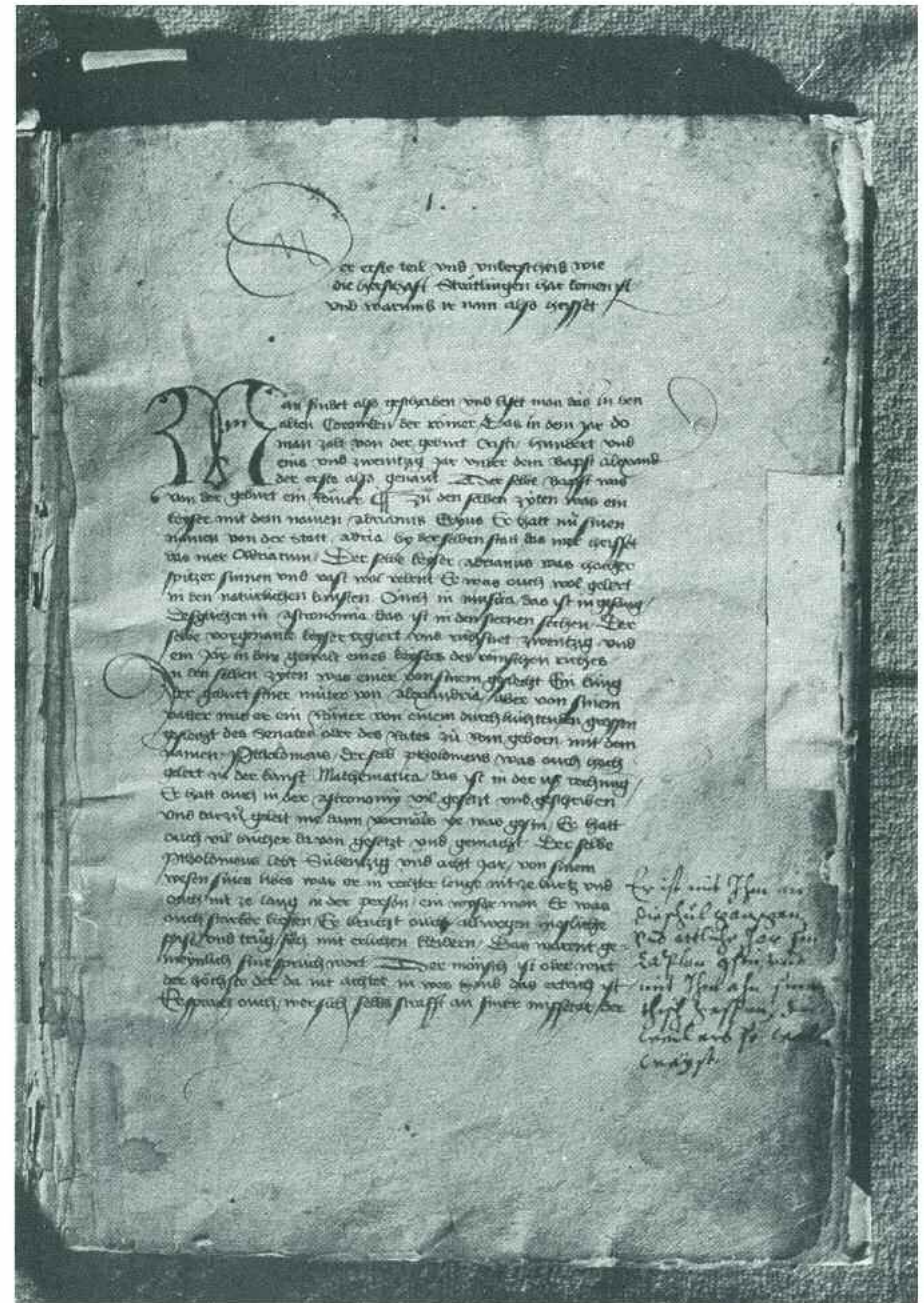 1.
Der erste teil und underscheid wie
die herschaft Strätlingen har komen ist
und warumb ir nam also heysset
Man findet also geschriben und liset man das in den
alten Coroniken der römer Das in dem jar do
man zalt von der geburt Cristi hundert und
eins und zwentzig jar under dem bapst Alexand
der erste also genant Der selbe bapst was
von der geburt ein römer zu den selben zyten was ein
keyser mit dem namen Adrianus Er hatt nu sinen
namen von der statt Adria by der selben statt das mer heysset
das mer Adriaticum Der selbe keyser Adrianus was
spitzer sinnen und vast wol redent Er was ouch wol gelert
in den naturlichen künsten Ouch in musica das ist in gesang
Desglichen in Astronomia das ist in den sternen sechen Der
selbe vorgenante keyser regiert und richsnet zwentzig und
ein jar in dem gewalt eines keysers des römschen riches
In den selben zyten was einer von sinem geslecht Ein küng
der geburt siner müter von Alexandria aber von sinem
vatter was er ein römer von einem durchlüchtenden grossen
geslecht des Senaten oder des rates zu rom geborn mit dem
namen Ptholomeus der selb ptholomeus was ouch hoch
gelert in der kunst Mathematica das ist in der uss rechnung
Er hatt ouch in der Astronomy vil gesetzt und geschriben
und darzu geleit me dann vormals ye was gesin Er hatt
ouch vil bücher da von gesetzt und gemacht Der selbe
Ptholomeus lebt Sübentzig und acht jar von sinem
wesen sines libes was er in rechter lenge nit ze kurtz und
ouch nit ze lang in der person ein wyser man Er was
ouch starcker Er ouch
spise und mit erlichen kleidern Das warent ge-
meynlich sine sprüch wort Der mönsch ist ober
der höchste der da nit achtet in wes hand das ertrich ist
Er sprach ouch wer sich selbs strafft an siner missetat der
Er ist mit Ihm an
die schul gangen
und ettliche Jar sin
Caplan gsin und
mit Ihm